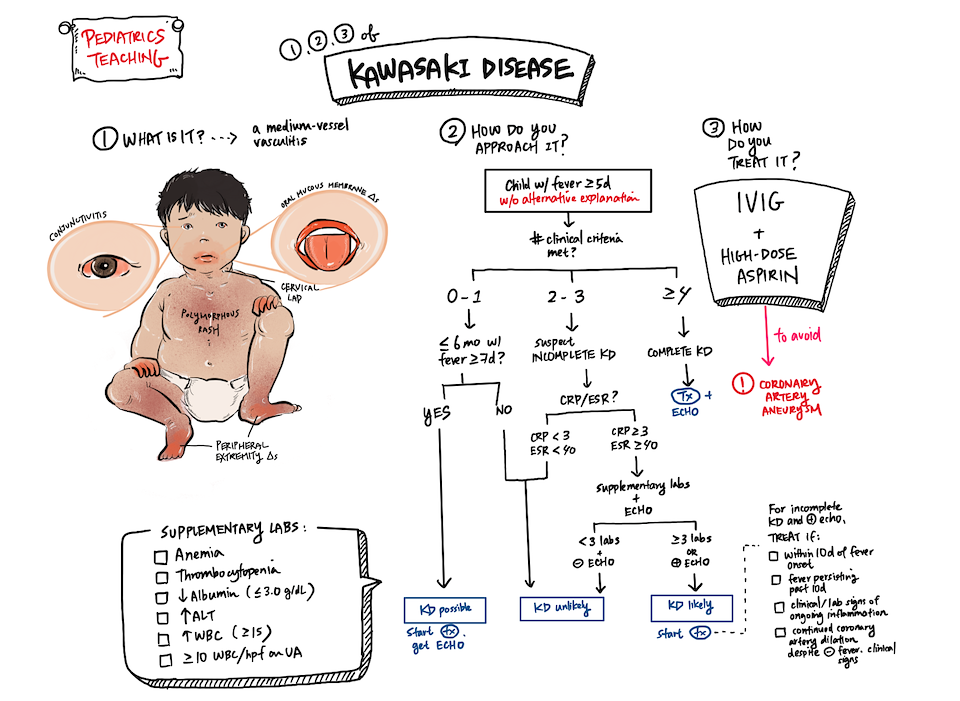 PEDIATRICS
TEACHING
①, ②, ③ of
KAWASAKI DISEASE
① WHAT IS IT? ---> a medium-vessel
vasculitis
CONJUNCTIVITIS
ORAL MUCOUS MEMBRANE Δs
CERVICAL
LAD
POLYMORPHOUS
RASH
PERIPHERAL
EXTREMITY Δs
SUPPLEMENTARY LABS:
☐ Anemia
☐ Thrombocytopenia
☐ ↓ Albumin (≤3.0 g/dL)
☐ ↑ ALT
☐ ↑ WBC (≥15)
☐ ≥10 WBC/hpf on UA
② HOW DO YOU
APPROACH IT?
Child w/ fever ≥5d
w/o alternative explanation
# clinical criteria
met?
0-1
2-3
≥4
≤6mo w/
fever ≥7d?
suspect
INCOMPLETE KD
COMPLETE KD
Tx +
ECHO
YES
NO
CRP/ESR?
CRP < 3
ESR < 40
CRP ≥ 3
ESR ≥ 40
supplementary labs
+
ECHO
<3 labs
+
⊖ ECHO
≥3 labs
OR
⊕ ECHO
KD possible
start tx.
get ECHO
KD unlikely
KD likely
start tx
③ HOW
DO YOU
TREAT IT?
IVIG
+
HIGH-DOSE
ASPIRIN
to avoid
! CORONARY
ARTERY
ANEURYSM
For incomplete
KD and ⊕ echo,
TREAT if:
☐ within 10d of fever
onset
☐ fever persisting
past 10d
☐ clinical/lab signs of
ongoing inflammation
☐ continued coronary
artery dilation
despite ⊖ fever. clinical
signs